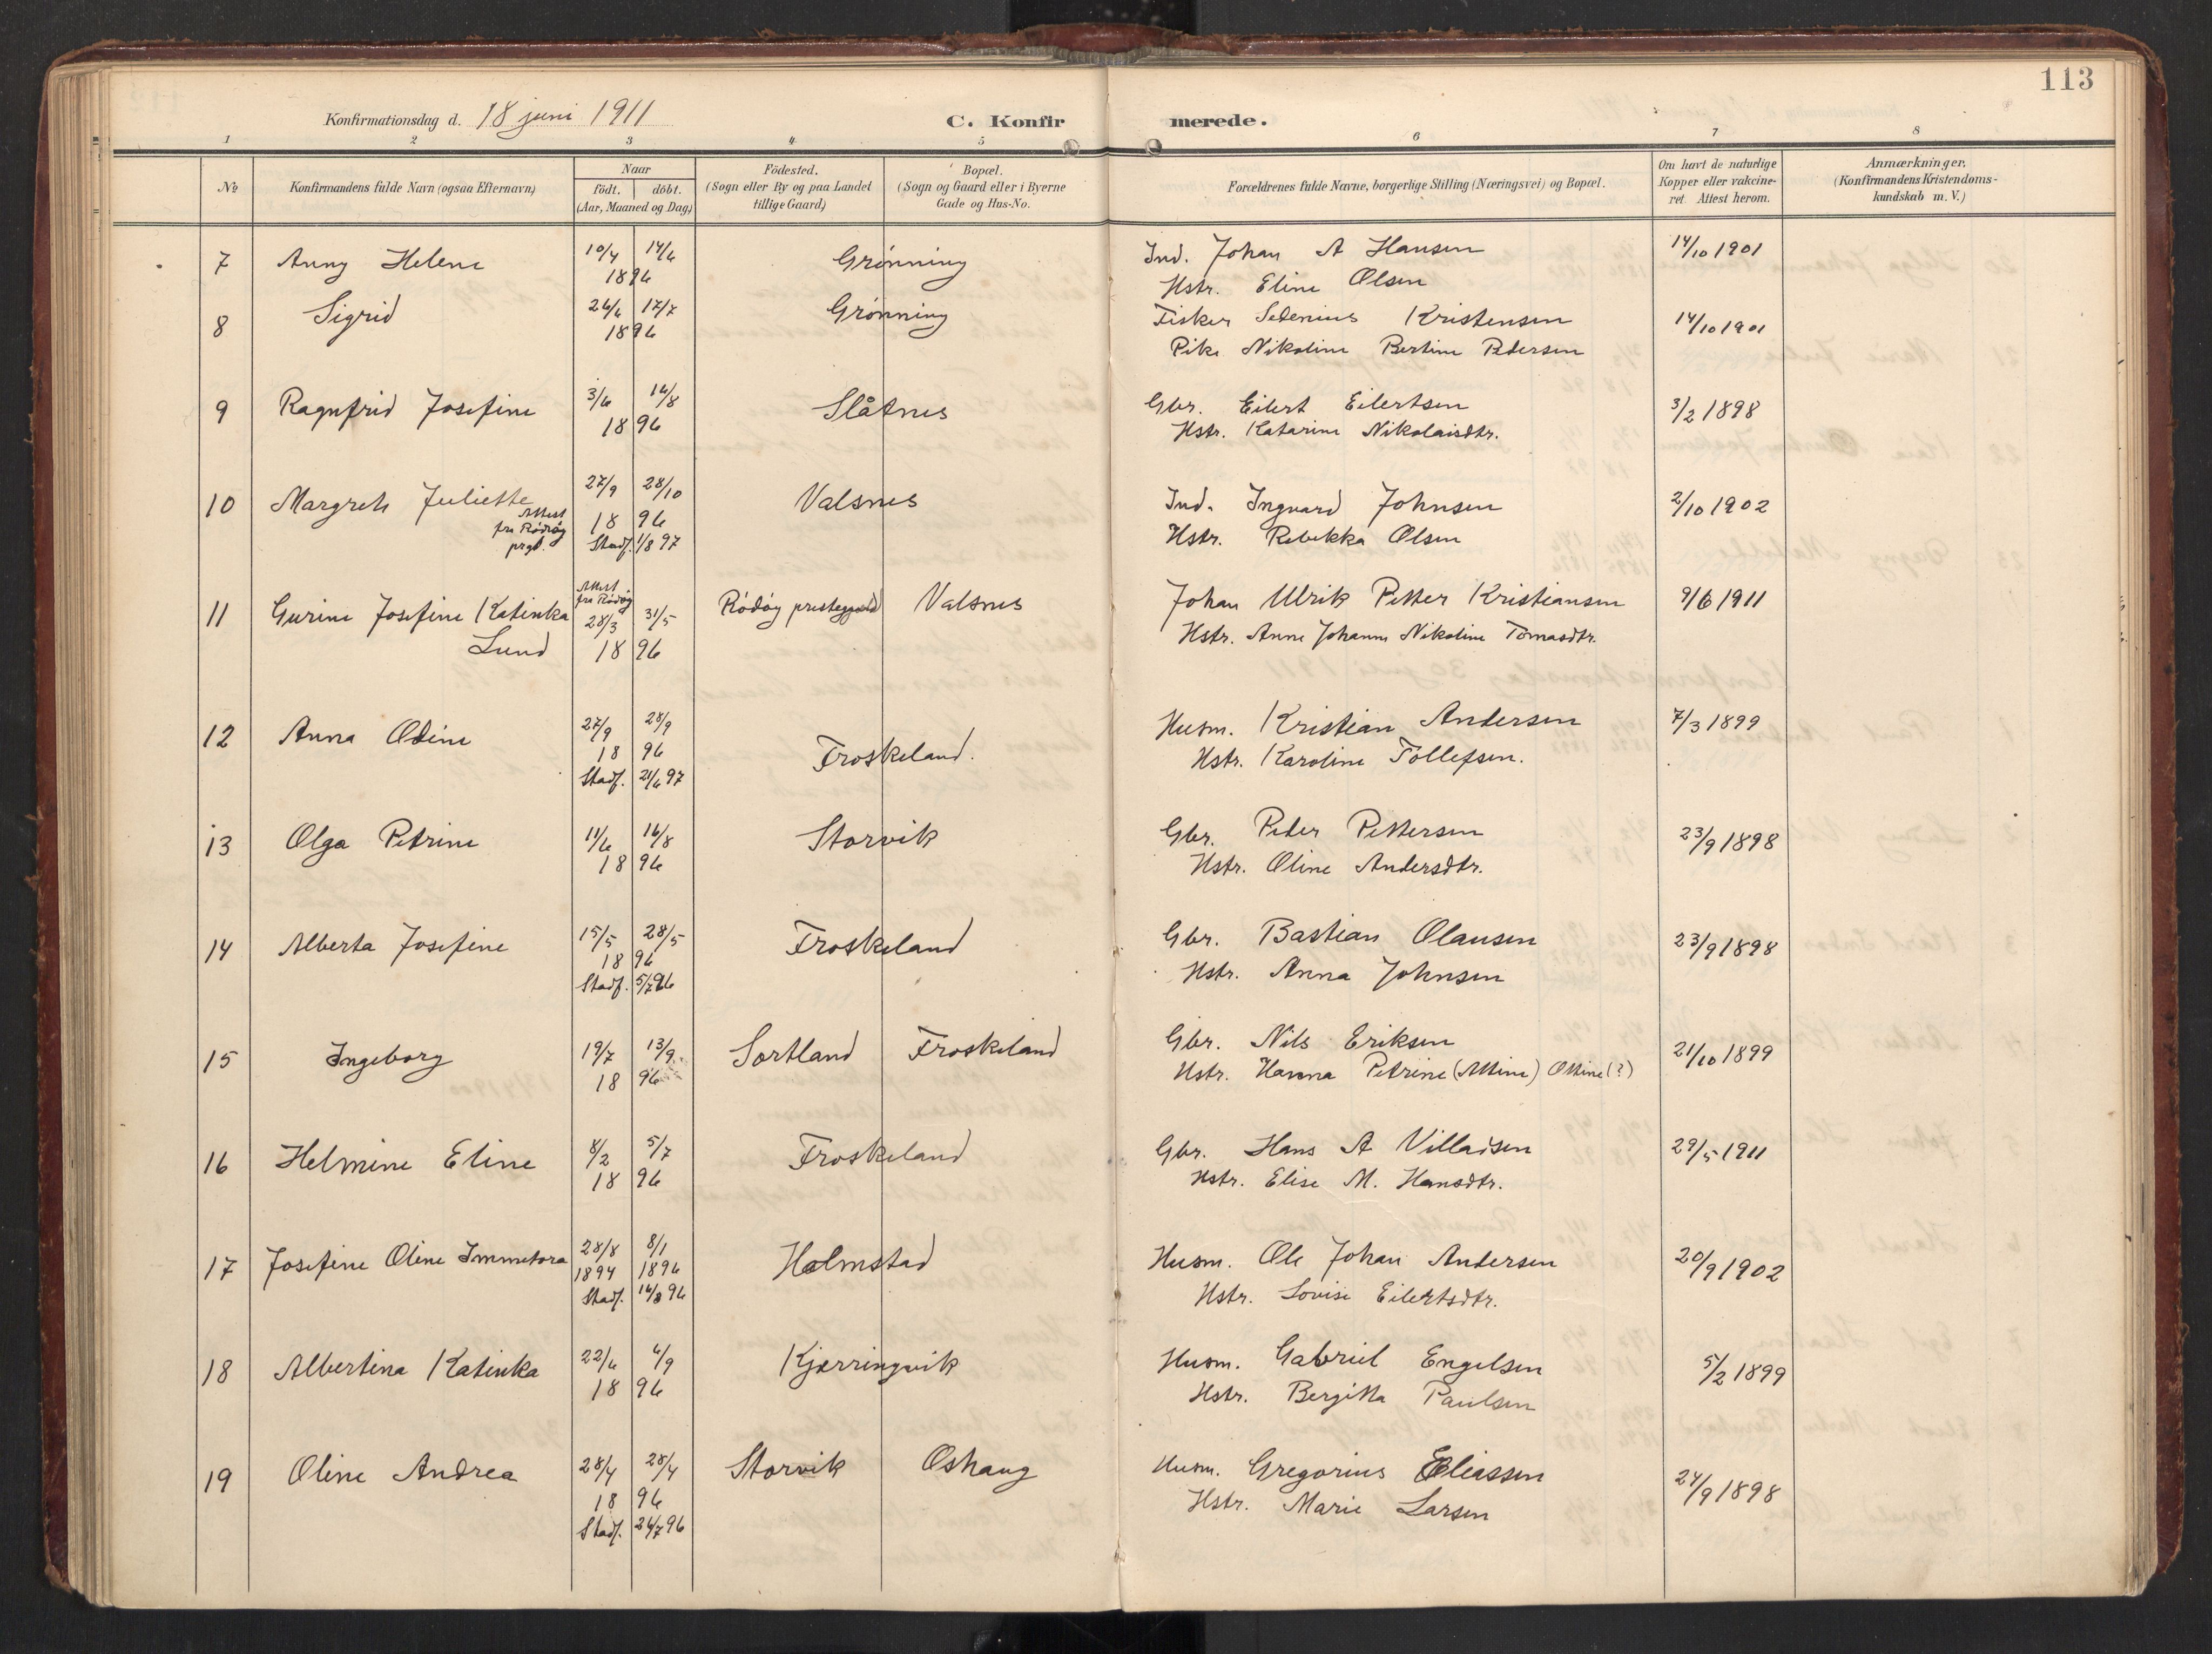 113
Konfirmationsdag d. 18 juni 1911
C. Konfirmerede.
1 2 3 4 5 6 7 8
№
Konfirmandens fulde Navn (ogsaa Efternavn)
Naar
födt. döbt.
(Aar, Maaned og Dag)
Födested.
(Sogn eller By og paa Landet
tillige Gaard)
Bopæl.
(Sogn og Gaard eller i Byerne
Gade og Hus-No.
Forældrenes fulde Navne, borgerlige Stilling (Næringsvei) og Bopæl.
Om havt de naturlige
Kopper eller vakcine-
ret. Attest herom.
Anmærkninger,
(Konfirmandens Kristendoms-
kundskab m. V.)
7 Anny Helene 10/4 14/6 Grønning Ind. Johan A Hansen 14/10 1901
1896 Hstr. Eline Olsen
8 Sigrid 26/6 17/7 Grønning Fisker Sedenius Kristensen 14/10 1901
1896 Pike Nikoline Bertine Pedersen
9 Ragnfrid Josefine 3/6 16/8 Slåtnes Gbr. Eilert Eilertsen 3/2 1898
1896 Hstr. Katarine Nikolaisdtr.
10 Margreth Juliette 27/9 28/10 Valsnes Ind. Ingvard Johnsen 2/10 1902
Attest fra Rödöy prgd. 1896 Hstr. Rebekka Olsen
Stadf. 1/8 97
Attest fra Rödöy
11 Gurine Josefine Katinka 28/3 31/5 Rödöy prestegjeld Valsnes Johan Ulrik Petter Kristiansen 9/6 1911
Lund 1896 Hstr. Anne Johanne Nikoline Tomasdtr.
12 Anna Odine 27/9 28/9 Froskeland. Husm. Kristian Andersen 7/3 1899
1896 Hstr. Karoline Tollefsen.
Stadf. 21/6 97
13 Olga Petrine 11/6 16/8 Storvik Gbr. Peder Pettersen 23/9 1898
1896 Hstr. Oline Andersdtr.
14 Alberta Josefine 15/5 28/5 Froskeland Gbr. Bastian Olausen 23/9 1898
1896 Hstr. Anna Johnsen
Stadf. 5/7 96
15 Ingeborg 19/7 13/9 Sortland Froskeland Gbr. Nils Eriksen 21/10 1899
1896 Hstr. Hanna Petrine (Attine) Ottine (?)
16 Helmine Eline 8/2 5/7 Froskeland Gbr. Hans A Villadsen 29/5 1911
1896 Hstr. Elise M. Hansdtr.
17 Josefine Oline Immetora 28/8 8/1 Holmstad Husm. Ole Johan Andersen 20/9 1902
1894 1896 Hstr. Lovise Eilertsdtr.
Stadf. 16/8 96
18 Albertina Katinka 22/6 6/9 Kjærringvik Husm. Gabriel Engelsen 5/2 1899
1896 Hstr. Bergitta Paulsen
19 Oline Andrea 28/4 28/4 Storvik Oshaug Husm. Gregorius Eliassen 24/9 1898
1896 Hstr. Marie Larsen
Stadf. 26/7 96